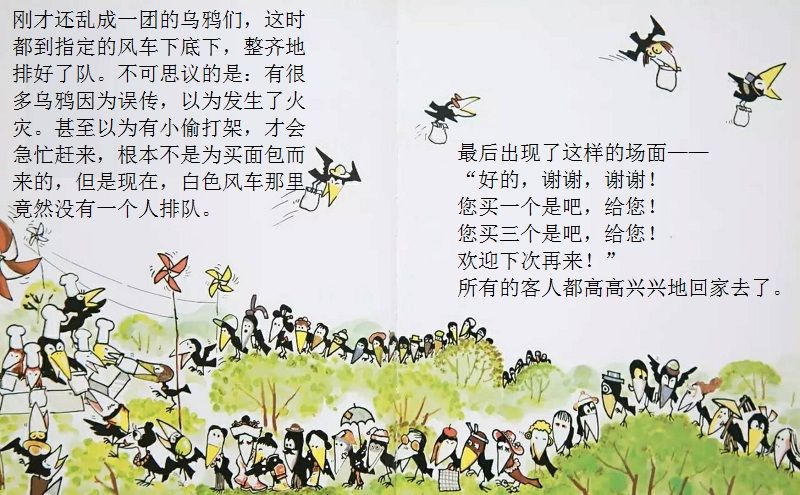 刚才还乱成一团的乌鸦们，这时
都到指定的风车下底下，整齐地
排好了队。不可思议的是：有很
多乌鸦因为误传，以为发生了火
灾。甚至以为有小偷打架，才会
急忙赶来，根本不是为买面包而
来的，但是现在，白色风车那里
竟然没有一个人排队。
最后出现了这样的场面——
“好的，谢谢，谢谢！
您买一个是吧，给您！
您买三个是吧，给您！
欢迎下次再来！”
所有的客人都高高兴兴地回家去了。